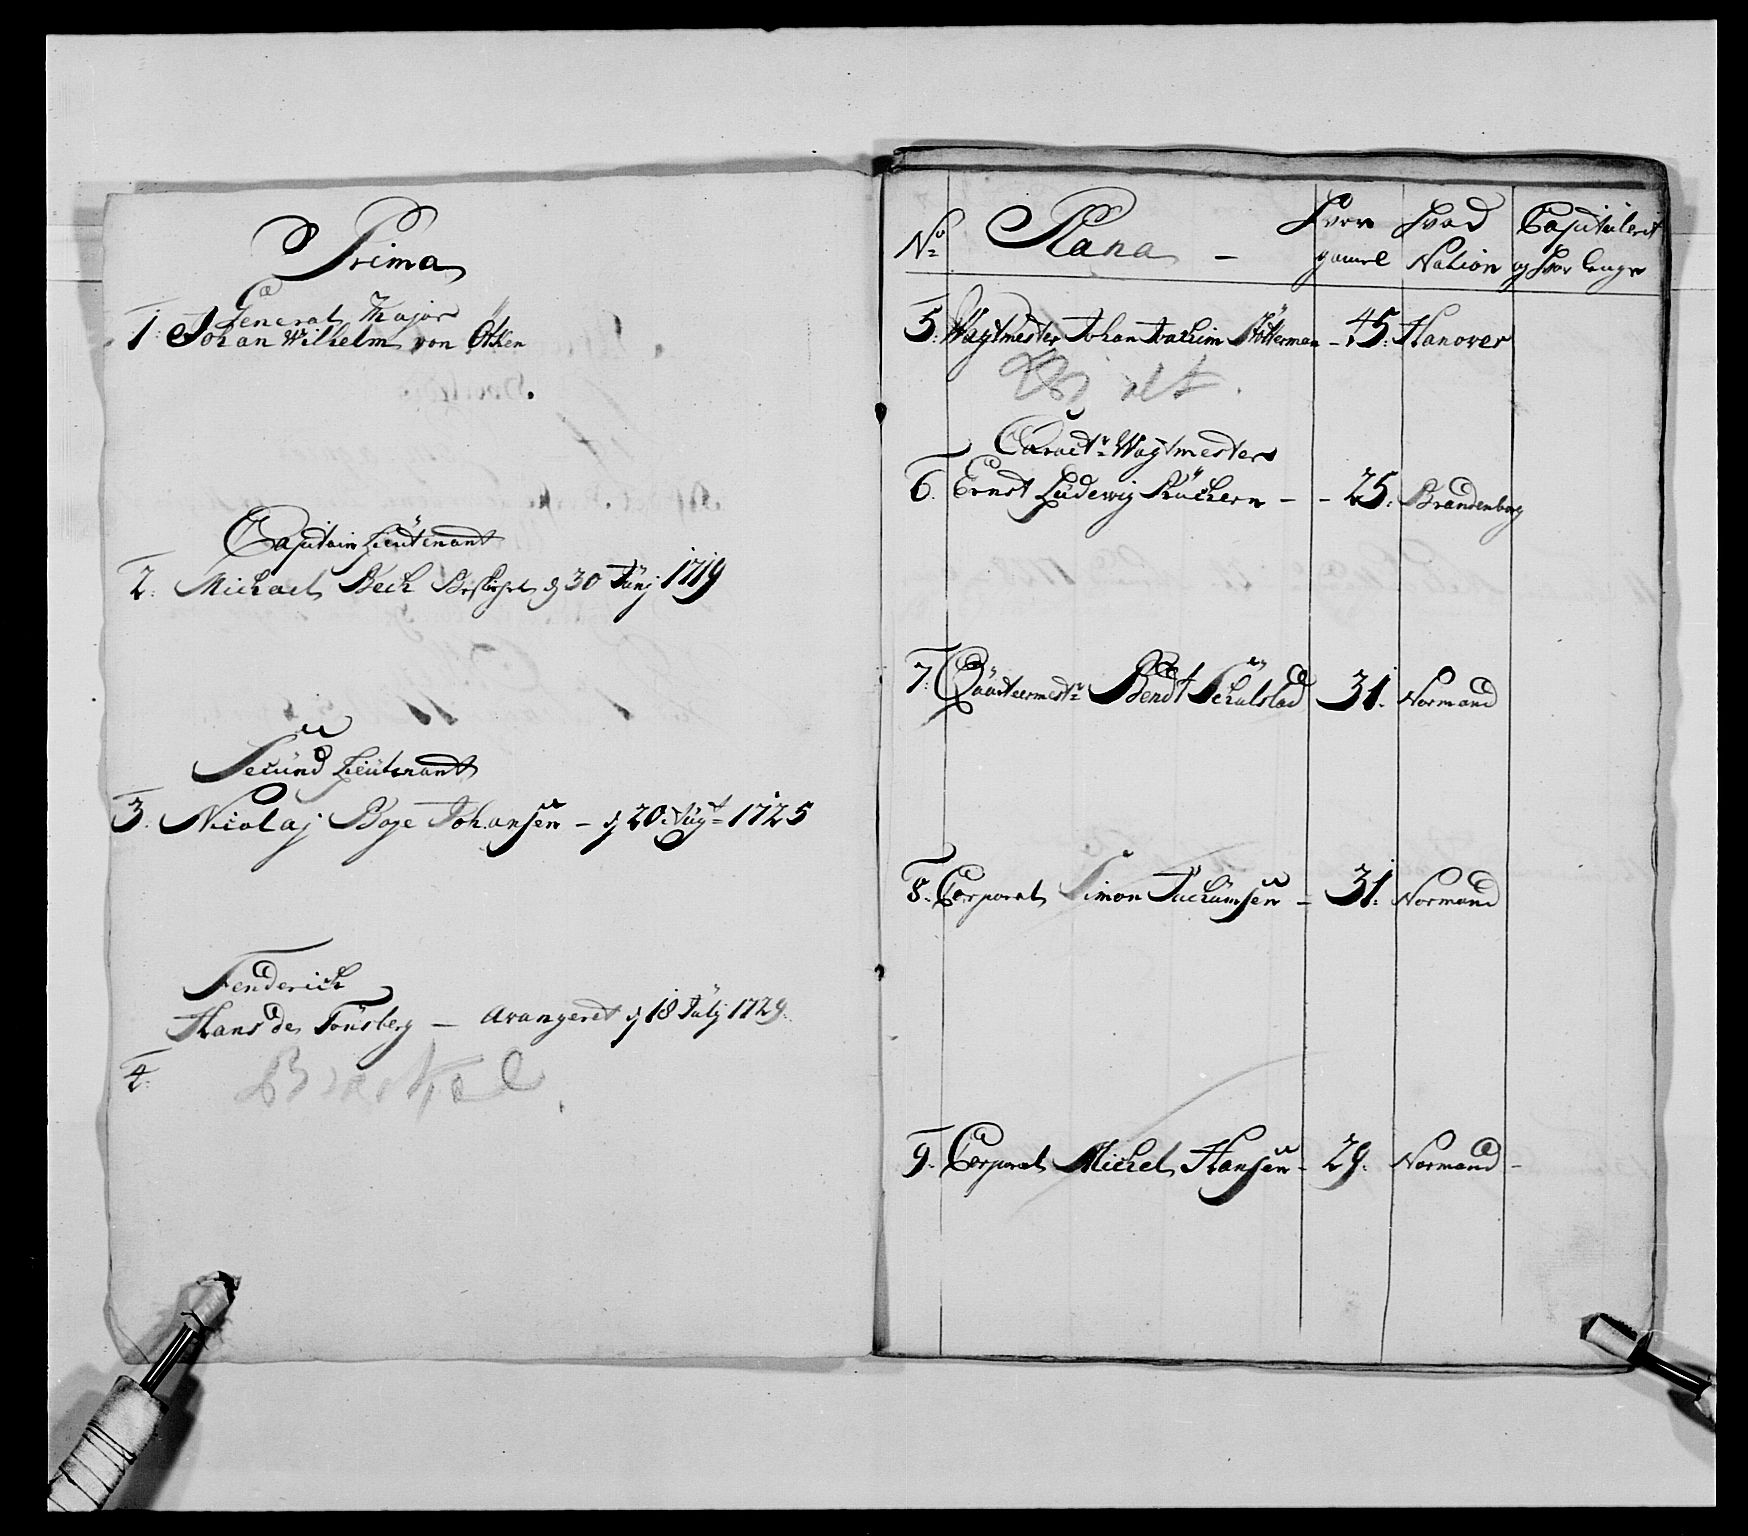 Prima
General Major
1. Johan Wilhelm von Otken
Capitain Lieütenant
2. Michael Bech Beskiket d 30 Jünj 1719
Secünd Lieütenant
3. Nicolaj Boye Johansen – d 20 Aügt 1725
Fenderich
Hans de Tonsberg — Avangeret d 18 Jülj 1729.
4.
No
Plana –
Hvor gamel
Hvad Nation
Capituleret og hvor lenge
5. Wagtmester Johan Joachim Stötterman – 45. Hanover
Caractr Wagtmester
6. Ernst Lüdewig Küchern – – 25. Brandenborg
7. Qüarteermestr Bendt Schülstad 31. Normand
8. Corporal Simon Jachümsen – 31. Normand
9. Corporal Michel Hansen – 29. Normand –